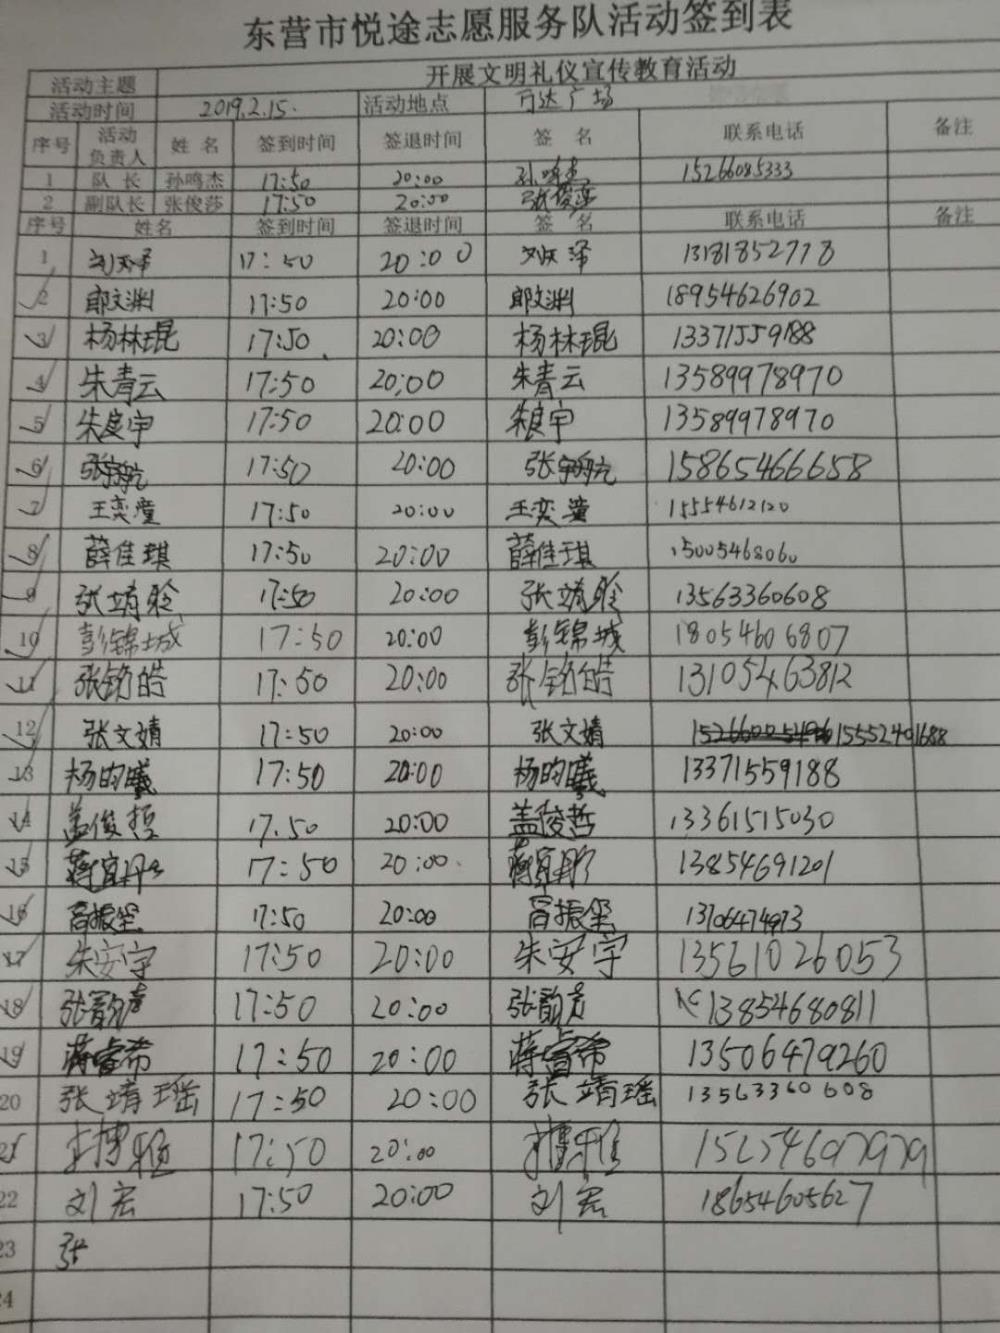 东营市悦途志愿服务队活动签到表
活动主题 开展文明礼仪宣传教育活动
活动时间 2019.2.15. 活动地点 万达广场
序号 活动负责人 姓名 签到时间 签退时间 签 名 联系电话 备注
1 队 长 孙鸣杰 17:50 20:00 孙鸣杰 15266085333
2 副队长 张俊莎 17:50 20:00 张俊莎
序号 姓名 签到时间 签退时间 签 名 联系电话 备注
1 17:50 20:00 13181852778
2 郎文渊 17:50 20:00 郎文渊 18954626902
3 杨林琨 17:50 20:00 杨林琨 13371559188
4 朱青云 17:50 20:00 朱青云 13589978970
5 17:50 20:00 13589978970
6 张宇航 17:50 20:00 张宇航 15865466658
7 王奕潼 17:50 20:00 王奕潼 15554612120
8 薛佳琪 17:50 20:00 薛佳琪 15005468060
9 张靖聆 17:50 20:00 张靖聆 13563360608
10 彭锦城 17:50 20:00 彭锦城 18054606807
11 张铭皓 17:50 20:00 张铭皓 13105463812
12 张文婧 17:50 20:00 张文婧 15552491688
13 杨昀曦 17:50 20:00 杨昀曦 13371559188
14 盖俊哲 17.50 20:00 盖俊哲 13361515030
15 17:50 20:00 13854691201
16 17:50 20:00 13706474973
17 朱安宇 17:50 20:00 朱安宇 13561026053
18 17:50 20:00 13854680811
19 蒋睿希 17:50 20:00 蒋睿希 13506479260
20 张靖瑶 17:50 20:00 张靖瑶 13563360608
21 17:50 20:00
22 刘宏 17:50 20:00 刘宏 18654605627
23 张
24